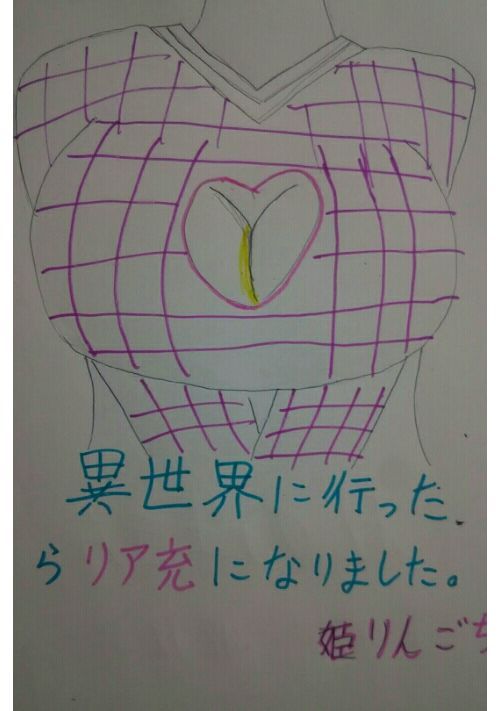 異世界に行った
らリア充になりました。
姫りんごち